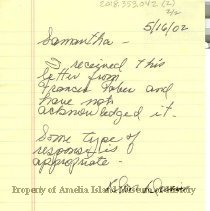 2018.353.042 (2)
2/2
5/16/02
Samantha -
I received this
letter from
Frances and
have not
acknowledged it.
Some type of
response is
appropriate.
Property of Amelia Island Museum of History